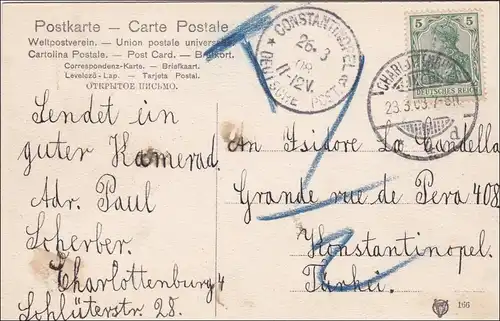 Postkarte – Carte Postale
Weltpostverein. – Union postale universelle
Cartolina Postale. – Post Card. – Brefkort.
Correspondenz-Karte. – Briefkaart.
Levelező-Lap. – Tarjeta Postal.
ОТКРЫТОЕ ПИСЬМО.
CONSTANTINOPEL
26. 3
11-12V.
DEUTSCHE POST
5 5
DEUTSCHES REICH
CHARLOTTENBURG
23.3.03.7-8N.
d
Sendet ein
guter Kamerad.
Adr. Paul
Scherber.
Charlottenburg 4
Schlüterstr. 28.
An Isidore La Candella
Grande rue de Pera 408
Konstantinopel.
Türkei.
166